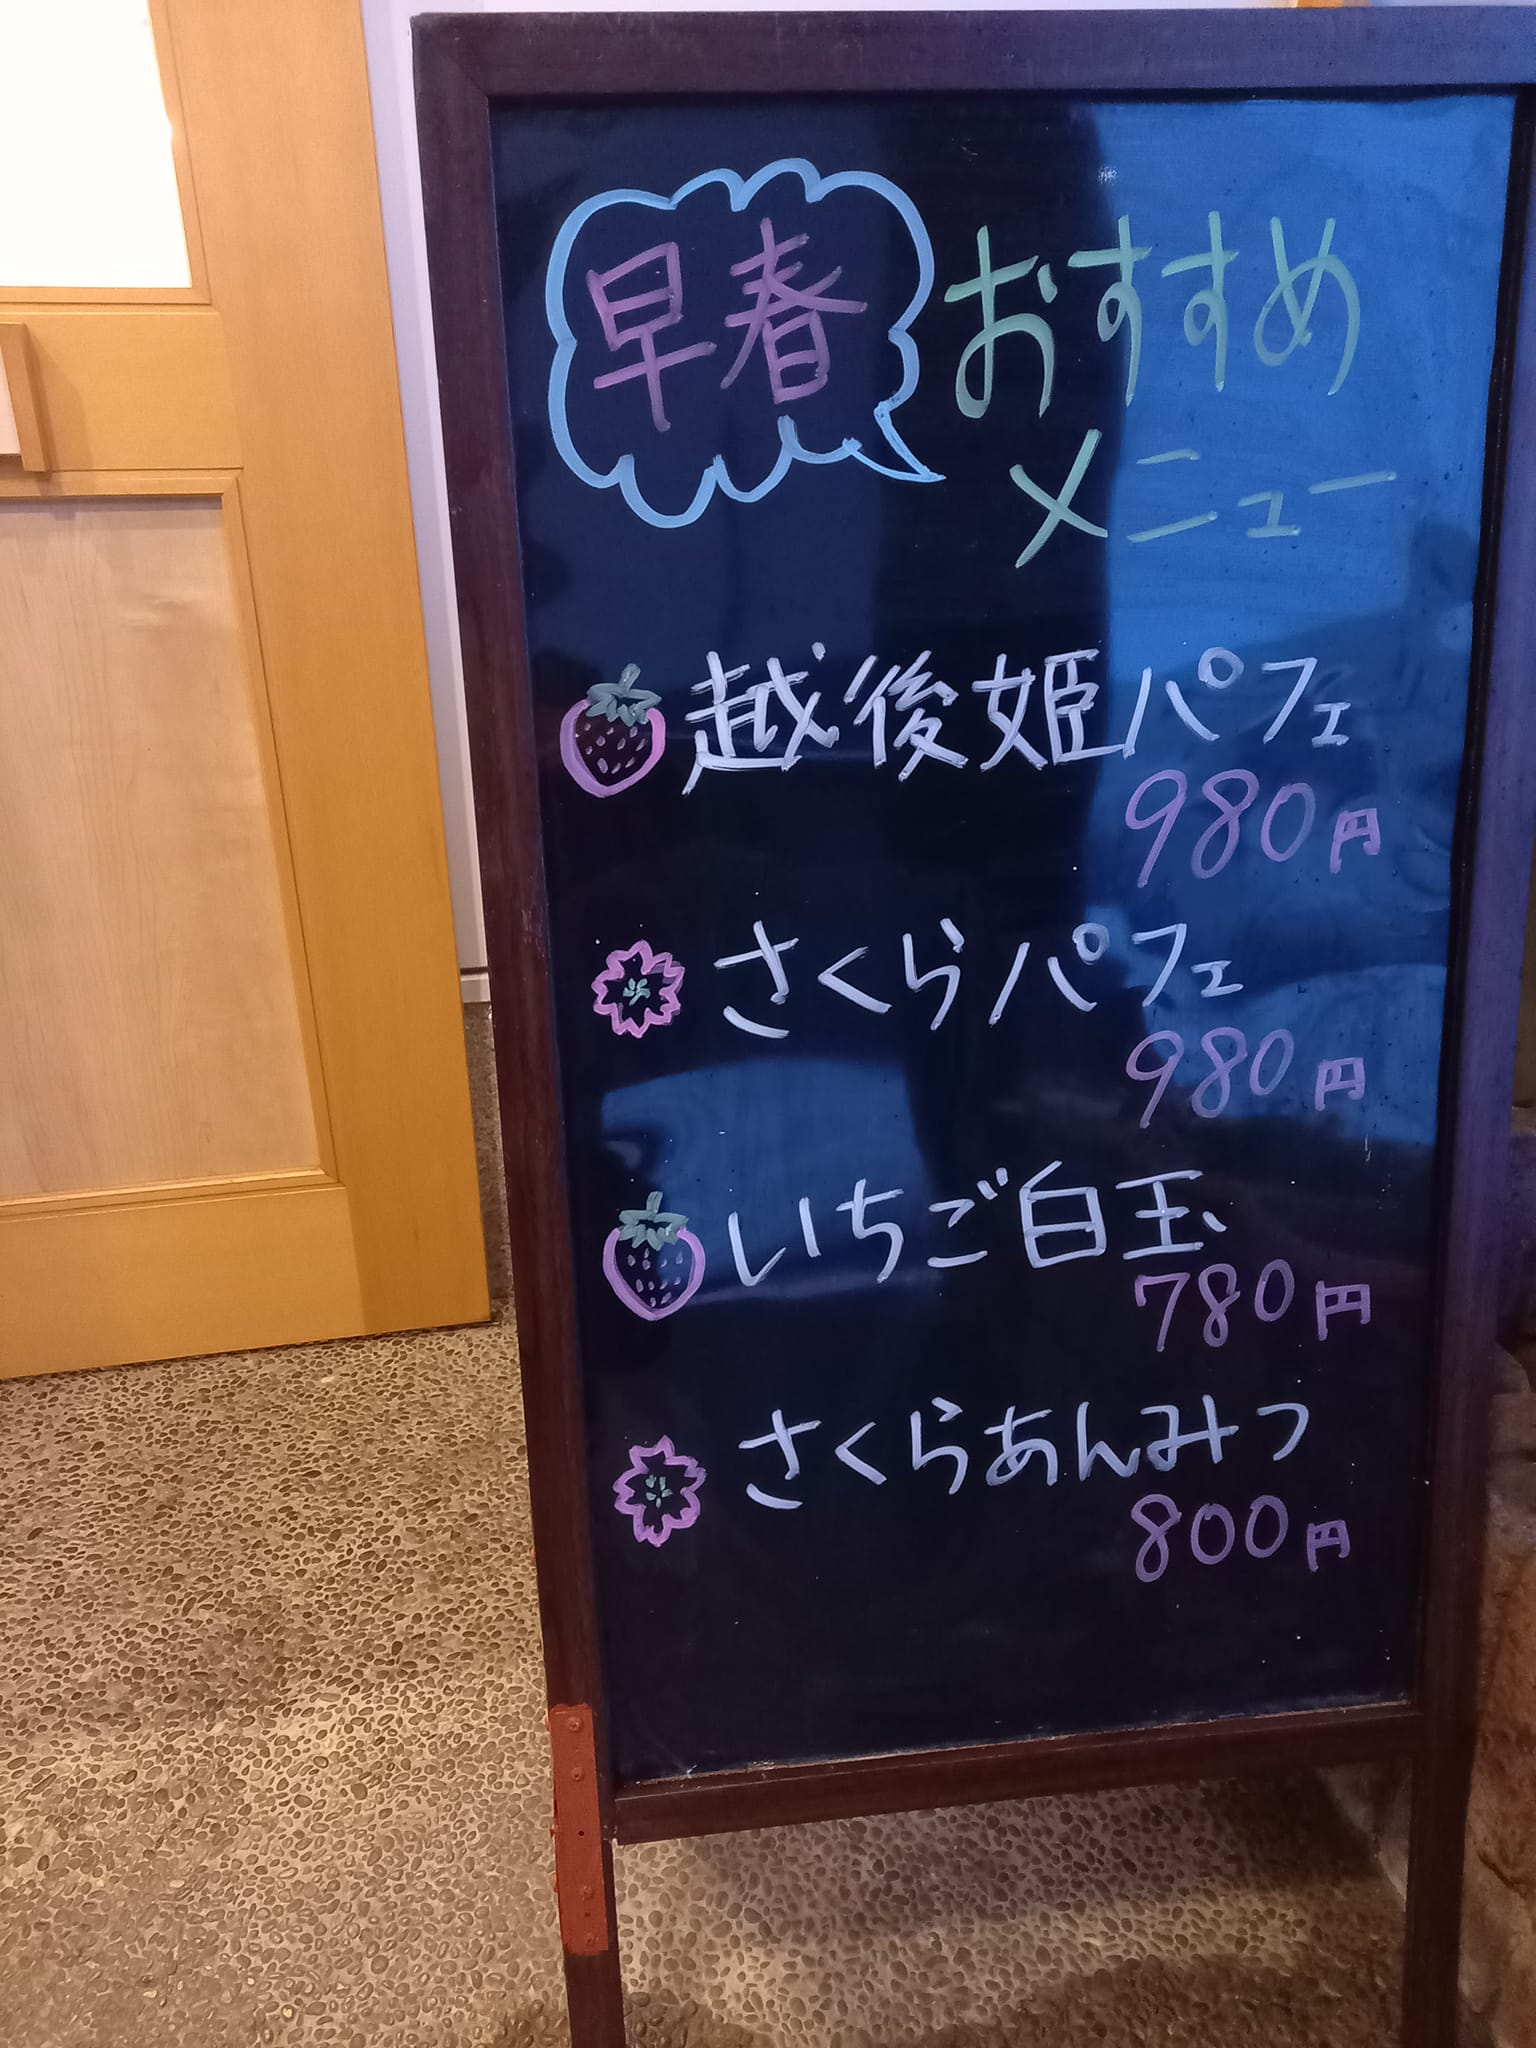 早春 おすすめ
メニュー
越後姫パフェ
980円
さくらパフェ
980円
いちご白玉
780円
さくらあんみつ
800円